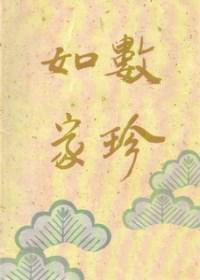 數珍
如家